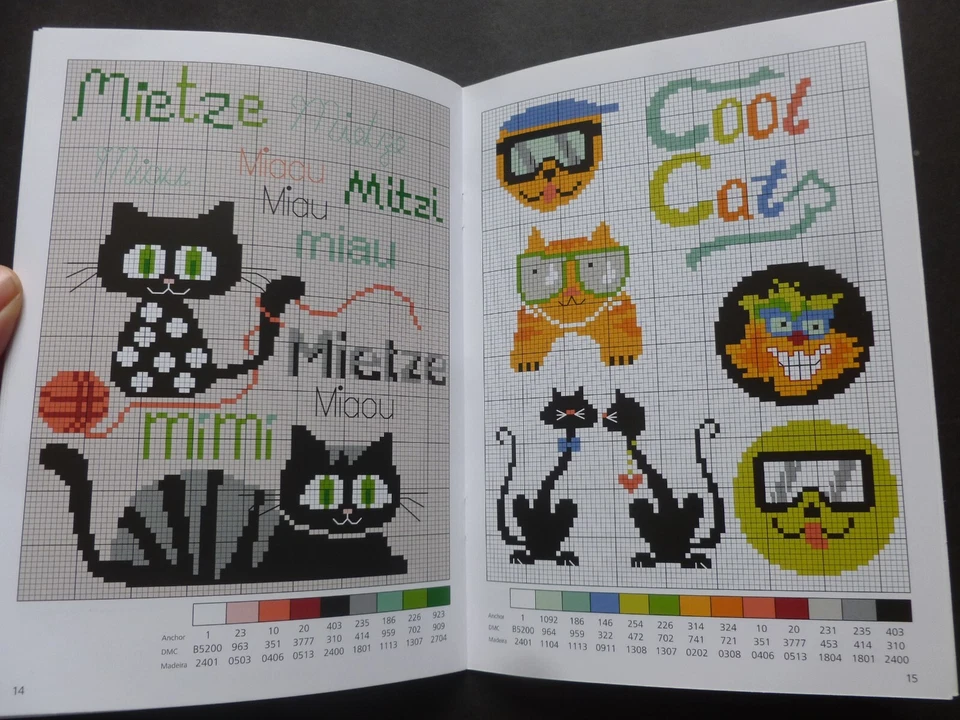 Mietze
Mietze
Miau
Miaou
Miau
Mitzi
miau
Mietze
Miaou
mimi
Anchor 1 23 10 20 403 235 186 226 923
DMC B5200 963 351 3777 310 414 959 702 909
Madeira 2401 0503 0406 0513 2400 1801 1113 1307 2704
14
Cool
Cats
Anchor 1 1092 186 146 254 226 314 324 10 20 231 235 403
DMC B5200 964 959 322 472 702 741 721 351 3777 453 414 310
Madeira 2401 1104 1113 0911 1308 1307 0202 0308 0406 0513 1804 1801 2400
15